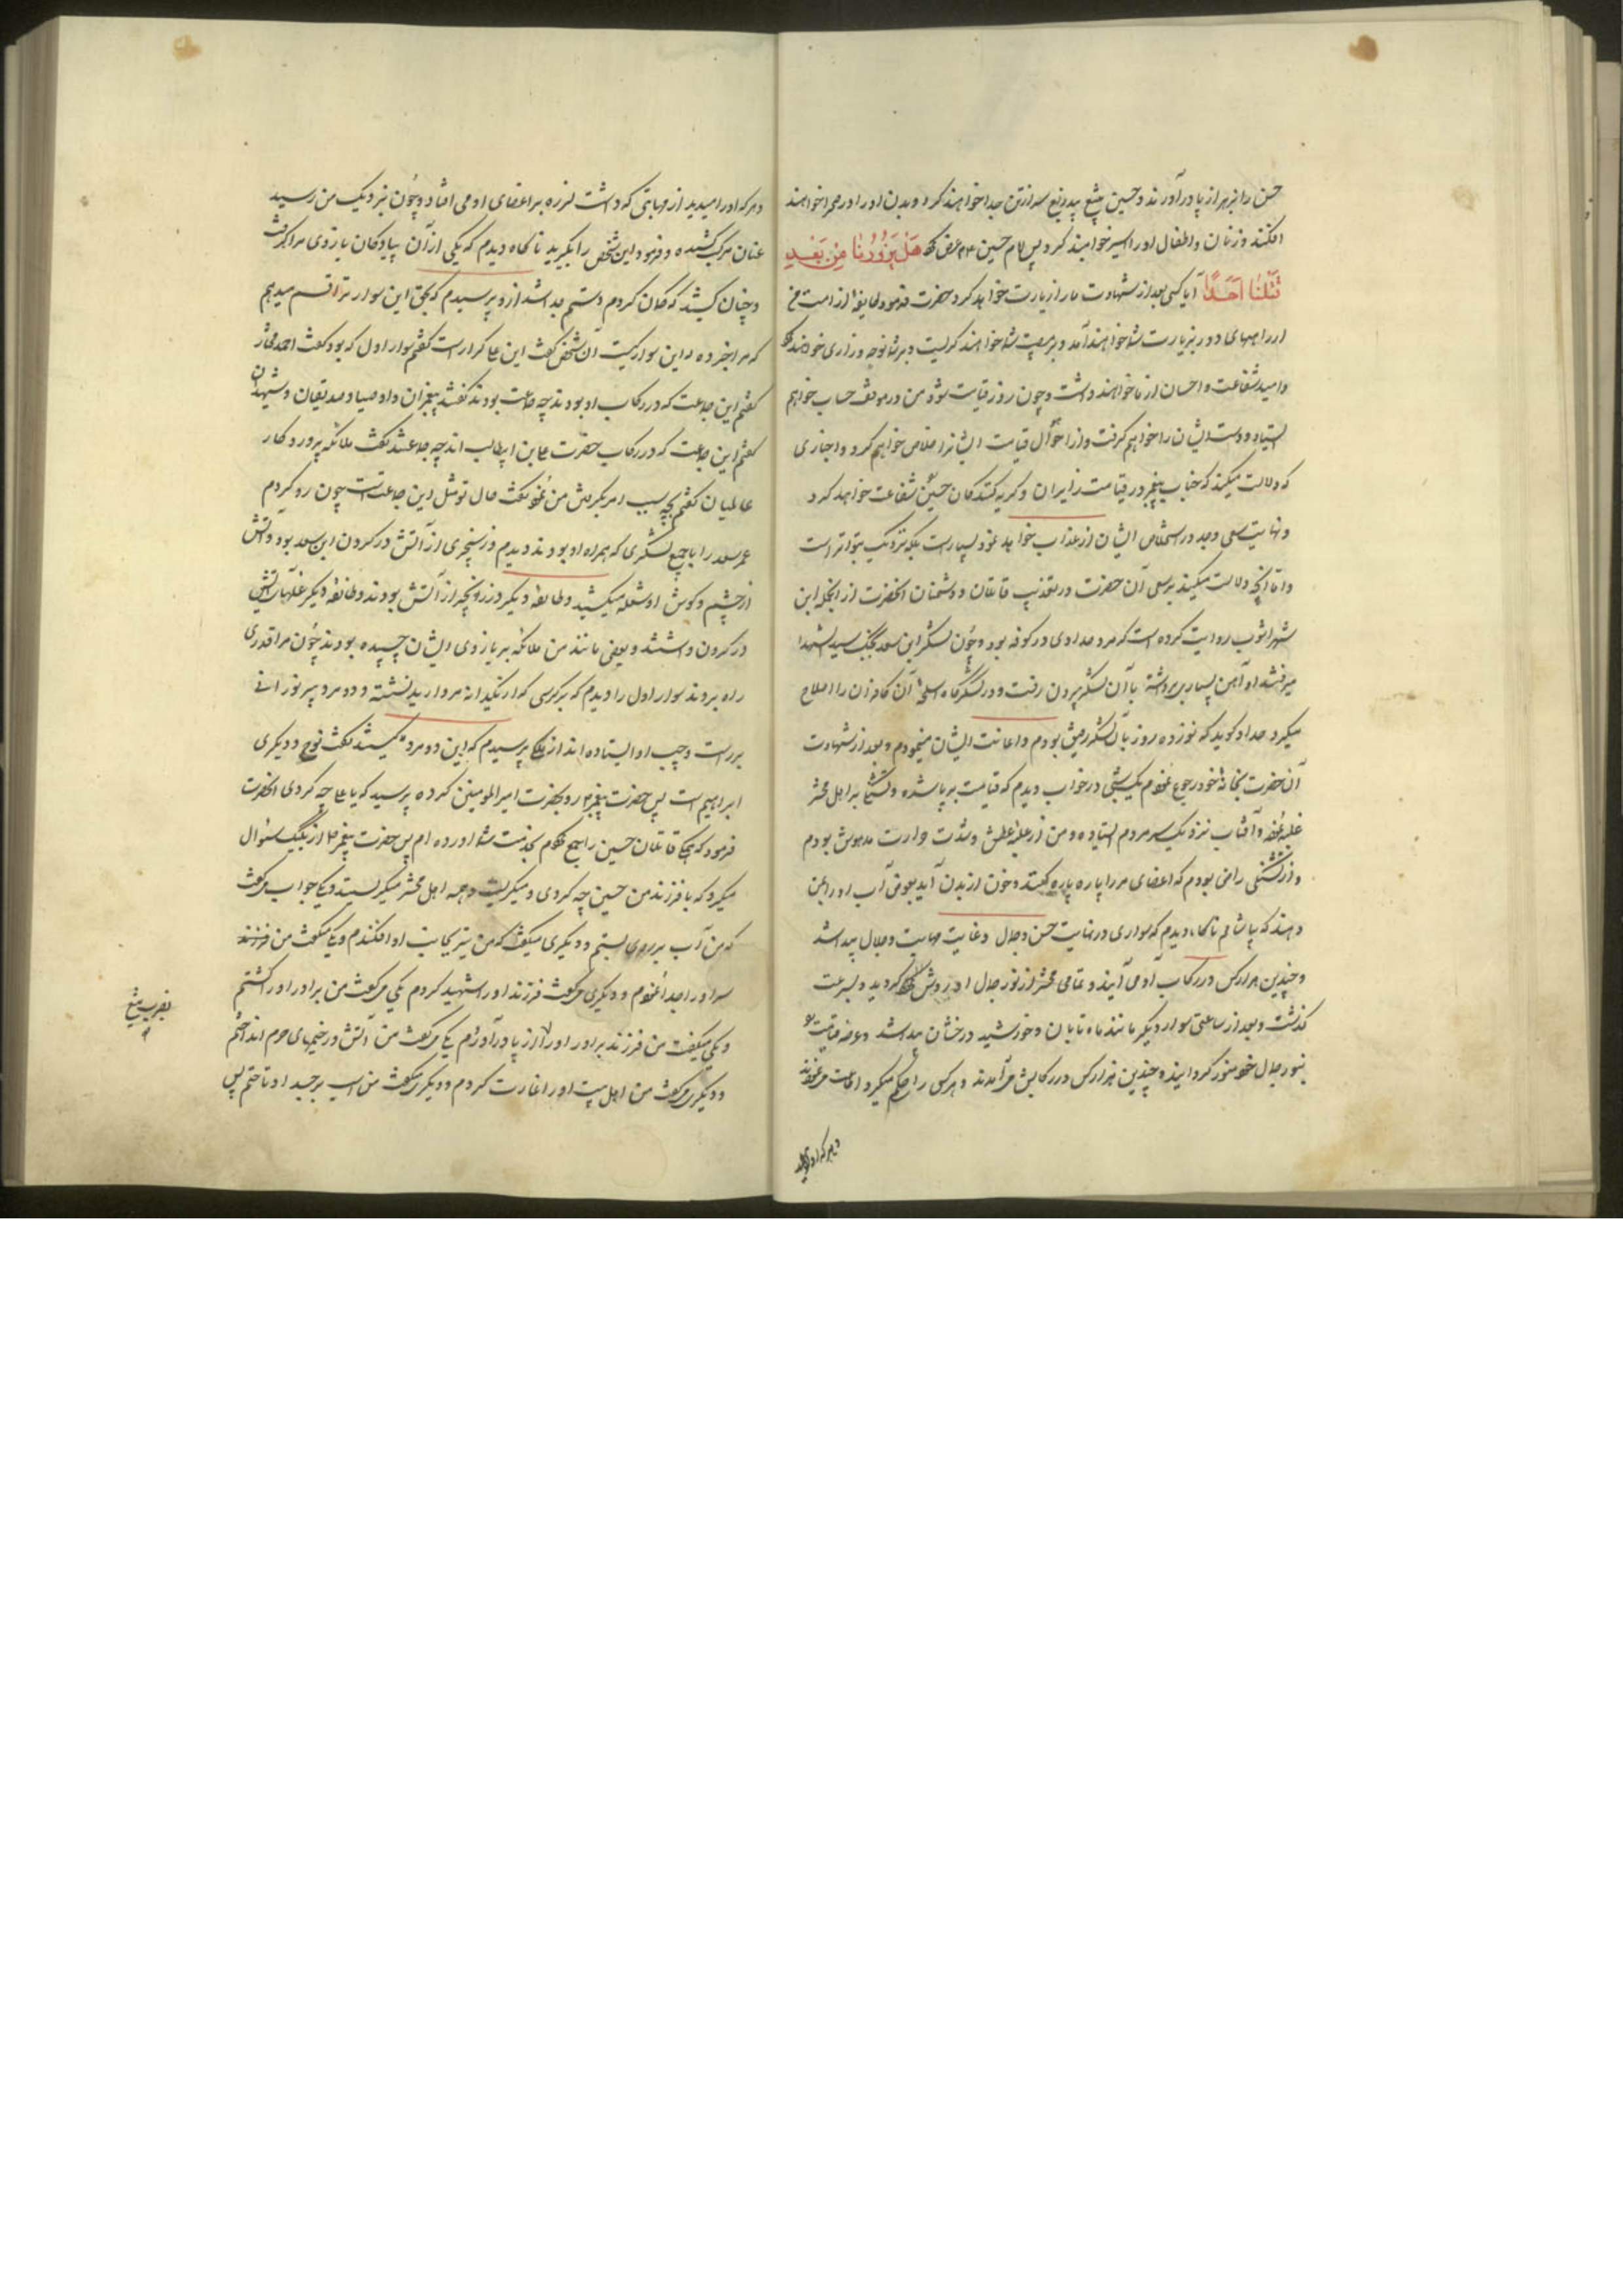 حسن را بزهر از پا درآورند و حسین بتیغ بیدریغ سر از تن جدا خواهند کرد و بدن او را در صحرا خواهند
افکند و زنان و اطفال او را اسیر خواهند کرد پس امام حسین عرض کرد هَلْ یَزُورُنا مِنْ بَعْدِ
قَتْلِنا اَحَدٌ آیا کسی بعد از شهادت ما را زیارت خواهد کرد حضرت فرمود طایفهٔ از امت من
از راههای دور بزیارت شما خواهند آمد و بر مصیبت شما خواهند گریست و بر شما نوحه و زاری خواهند کرد
و امید شفاعت و احسان از ما خواهند داشت و چون روز قیامت شود من در موقف حساب خواهم
ایستاد و دست ایشان را خواهم گرفت و از احوال قیامت ایشانرا خلاص خواهم کرد و اخباری
که دلالت میکند که جناب پیغمبر در قیامت زایران و گریه کنندگان حسین شفاعت خواهد کرد
و نهایت سعی و جد در استخلاص ایشان از عذاب خواهد نمود بسیارست بلکه نزدیک بتواتر است
و اما آنچه دلالت میکند بر سعی آن حضرت در تعذیب قاتلان و دشمنان آنحضرت از آنجمله ابن
شهرآشوب روایت کرده است که مرد حدادی در کوفه بود و چون لشکر ابن سعد بجنگ سید الشهدا
میرفتند او آهن بسیاری برداشته با آن لشکر بیرون رفت و در لشکرگاه اسلحهٔ آن کافران را اصلاح
میکرد حداد گوید که نوزده روز با آن لشکر رفیق بودم و اعانت ایشان مینمودم و بعد از شهادت
آن حضرت بخانهٔ خود رجوع نمودم یکشبی در خواب دیدم که قیامت برپا شده و تشنگی بر اهل محشر
غلبه نموده و آفتاب نزدیک سر مردم ایستاده و من از غلبهٔ عطش و شدت حرارت مدهوش بودم
و از تشنگی راضی بودم که اعضای مرا پاره پاره کنند و خون از بدن آید بعوض آب او را بمن
دهند که بیاشامم ناگاه دیدم که سواری در نهایت حسن و جمال و غایت مهابت و جلال پیدا شد
و چندین هزار کس در رکاب او می آیند و تمامی محشر از نور جمال او روشن گردید و بسرعت
گذشت و بعد از ساعتی سوار دیگر مانند ماه تابان و خورشید درخشان پیدا شد و عرصه قیامت
بنور جمال خود منور گردانید و چندین هزار کس در رکابش می آمدند و هر کس را حکم میکرد اطاعت می نمودند
و هر که او را میدید
و هر که او را میدید از مهابتی که داشت لرزه بر اعضای او می افتاد و چون نزدیک من رسید
عنان مرکب کشیده و فرمود این شخص را بگیرید ناگاه دیدم که یکی از آن پیادگان بازوی مرا گرفت
و چنان کشید که گمان کردم دستم جدا شد از و پرسیدم که بحق این سوار ترا قسم میدهم
که مرا خبر ده این سوار کیست آن شخص گفت این علی کرار است گفتم سوار اول که بود گفت احمد مختار
گفتم این جماعت که در رکاب او بودند چه جماعت بودند گفتند پیغمبران و اوصیا و صدیقان و شهیدان
گفتم این جماعت که در رکاب حضرت علی بن ابیطالب اند چه جماعتند گفت ملائکه پروردگار
عالمیان گفتم بچه سبب امر بگرفتن من نمود گفت حال تو مثل این جماعت است چون رو کردم
عمر سعد را با جمیع لشکری که همراه او بودند دیدم و زنجیری از آتش در گردن ابن سعد بود و آتش
از چشم و گوش او شعله میکشید و طائفهٔ دیگر در زنجیر از آتش بودند و طائفهٔ دیگر غلهای آتشین
در گردن داشتند و بعضی مانند من ملائکه بر بازوی ایشان چسپیده بودند چون مرا قدری
راه بردند سوار اول را دیدم که بر کرسی که از یکدانه مروارید نشسته و دو مرد پیر نورانی
بر راست و چپ او ایستاده اند از ملک پرسیدم که این دو مرد کیستند گفت نوح و دیگری
ابراهیم است پس حضرت پیغمبر رو بحضرت امیر المومنین کرده پرسید که یا علی چه کردی آنحضرت
فرمود که قاتلان حسین را جمع کردم بخدمت شما آورده ام پس حضرت پیغمبر از یک یک سئوال
میکرد که با فرزند من حسین چه کردی و میگریست و همه اهل محشر میگریستند و یکی جواب می گفت
که من آب بر روی او بستم و دیگری میگفت که من تیر بجانب او افکندم و یکی میگفت من فرزند
سر او را جدا نمودم و دیگری می گفت فرزند او را شهید کردم یکی می گفت من برادر او را کشتم
و یکی میگفت من فرزند برادر او را از پا درآوردم یکی می گفت من آتش در خیمهای حرم انداختم
و دیگری می گفت من اهل بیت او را غارت کردم و دیگری میگفت من اسب بر جسد او تاختم پس
بضرب تیغ